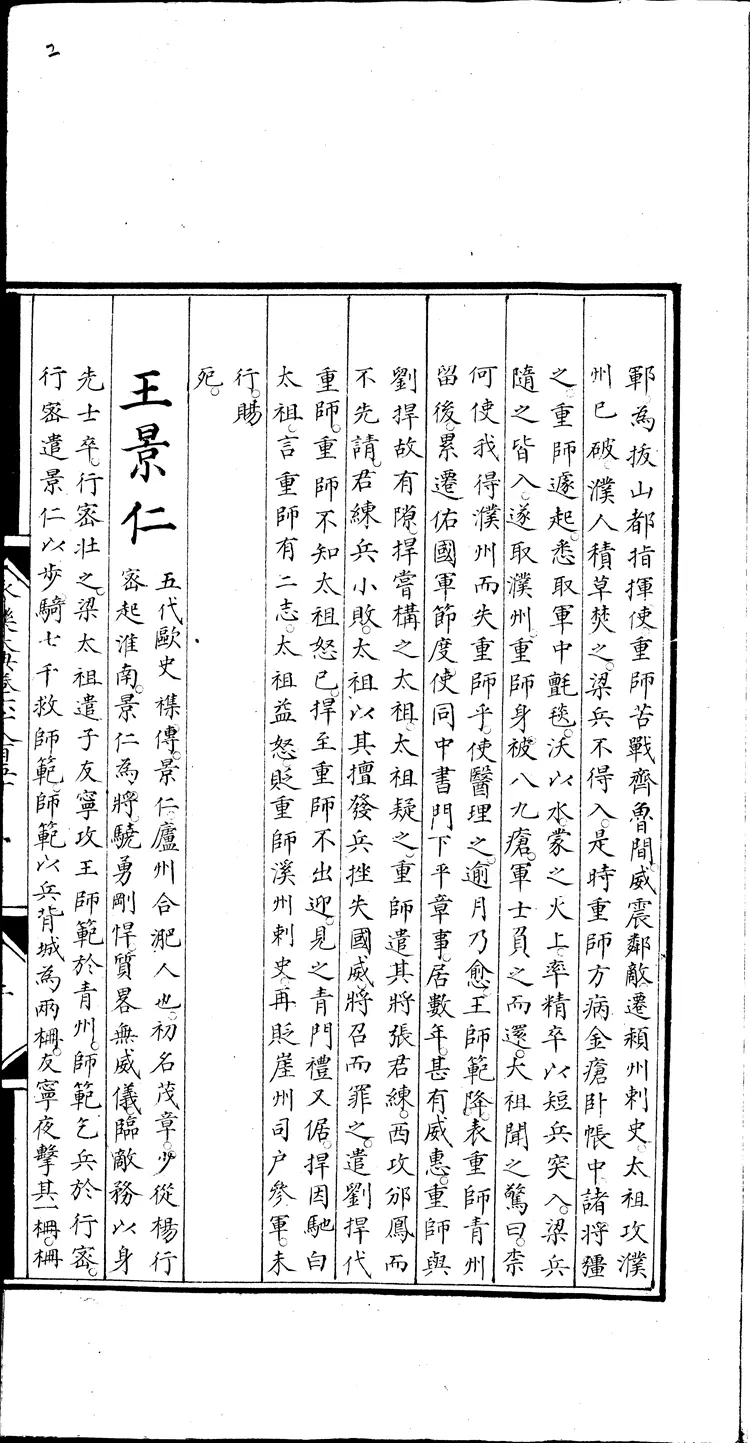 2
鄆。為拔山都指揮使。重師苦戰齊魯間。威震鄰敵。遷頴州刺史。太祖攻濮
州巳破。濮人積草焚之。梁兵不得入。是時重師方病金瘡卧帳中。諸將彊
之。重師遽起。悉取軍中氈毯。沃以水。蒙之火上。率精卒以短兵突入。梁兵
隨之皆入。遂取濮州。重師身被八九瘡。軍士負之而還。太祖聞之驚曰。柰
何使我得濮州而失重師乎。使醫理之。逾月乃愈。王師範降。表重師青州
留後。累遷佑國軍節度使同中書門下平章事。居數年。甚有威惠。重師與
劉捍故有隙。捍嘗構之太祖。太祖疑之。重師遣其將張君練。西攻邠鳳而
不先請。君練兵小敗。太祖以其擅發兵挫失國威。將召而罪之。遣劉捍代
重師。重師不知太祖怒巳。捍至重師不出迎。見之青門禮又倨。捍因馳白
太祖。言重師有二志。太祖益怒。貶重師溪州刺史。再貶崖州司户參軍。未
行。賜
死。
王景仁
五代歐史襍傳。景仁。廬州合淝人也。初名茂章。少從楊行
密起淮南。景仁為將。驍勇剛悍。質畧無威儀。臨敵務以身
先士卒。行密壯之。梁太祖遣子友寧攻王師範於青州。師範乞兵於行密。
行密遣景仁以步騎七千救師範。師範以兵背城為兩柵。友寧夜擊其一柵。柵